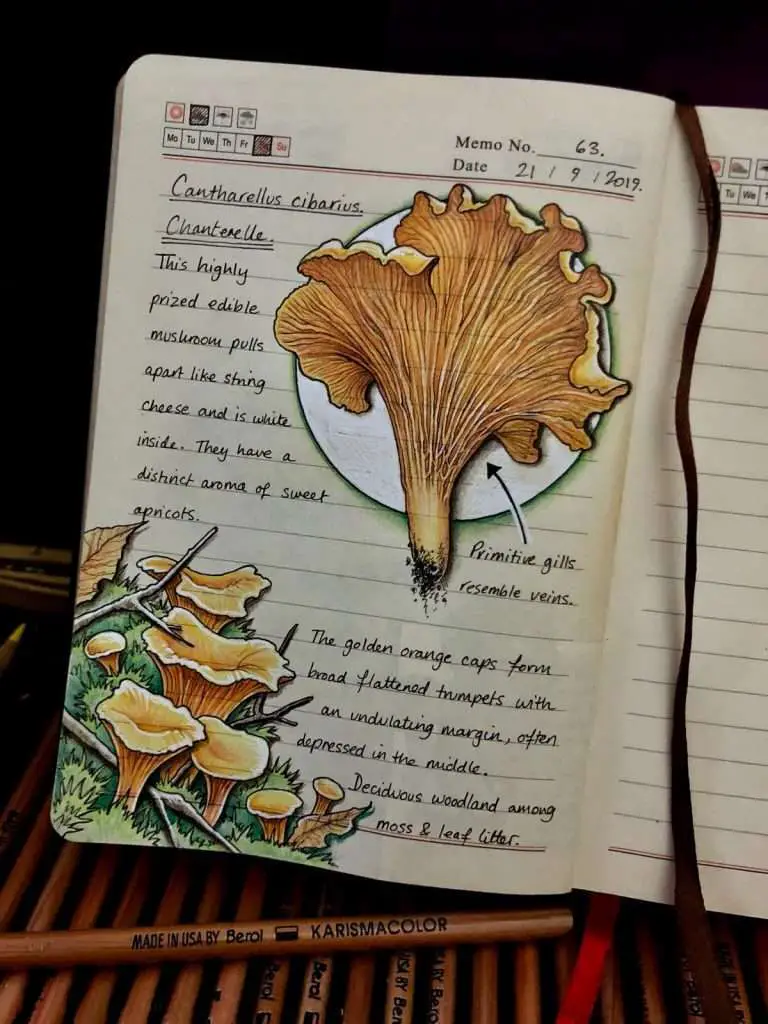 Mo Tu We Th Fr Sa Su
Memo No. 63.
Date 21 / 9 / 2019.
Cantharellus cibarius.
Chanterelle.
This highly
prized edible
mushroom pulls
apart like string
cheese and is white
inside. They have a
distinct aroma of sweet
apricots.
Primitive gills
resemble veins.
The golden orange caps form
broad flattened trumpets with
an undulating margin, often
depressed in the middle.
Deciduous woodland among
moss & leaf litter.
Tu We
MADE IN USA BY Berol KARISMACOLOR